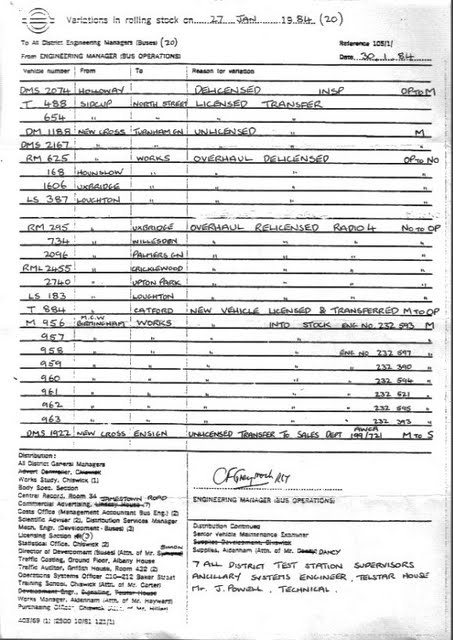 Variations in rolling stock on 27 JAN 1984 (20)
To All District Engineering Managers (Buses) (20) Reference 105/1/
From ENGINEERING MANAGER (BUS OPERATIONS) Date 30.1.84
Vehicle number From To Reason for variation
DMS 2074 HOLLOWAY DELICENSED INSP OP TO M
T 488 SIDCUP NORTH STREET LICENSED TRANSFER
654 " " " "
DM 1188 NEW CROSS TURNHAM GN UNLICENSED " M
DMS 2167 " " " " "
RM 625 " WORKS OVERHAUL DELICENSED OP TO NO
168 HOUNSLOW " " " "
1606 UXBRIDGE " " " "
LS 387 LOUGHTON " " " "
RM 295 " UXBRIDGE OVERHAUL RELICENSED RADIO 4 NO TO OP
734 " WILLESDEN " " " "
2096 " PALMERS GN " " " "
RML 2455 " CRICKLEWOOD " " " "
2740 " UPTON PARK " " " "
LS 183 " LOUGHTON " " " "
T 884 " CATFORD NEW VEHICLE LICENSED & TRANSFERRED M TO OP
M 956 M.C.W BIRMINGHAM WORKS " INTO STOCK ENG NO. 232 593 M
957 " " " " "
958 " " " " ENG NO 232 597 "
959 " " " " " 232 390 "
960 " " " " " 232 594 "
961 " " " " " 232 521 "
962 " " " " " 232 595 "
963 " " " " " 232 393 "
DMS 1922 NEW CROSS ENSIGN UNLICENSED TRANSFER TO SALES DEPT 199/721 M TO S
Distribution:
All District General Managers
Advert Controller, Chiswick
Works Study, Chiswick (1)
Body Spec. Section
Central Record, Room 34 JAMESTOWN ROAD
Commercial Advertising,
Costs Office (Management Accountant Bus Eng.) (2)
Scientific Adviser (2), Distribution Services Manager
Mech. Engr. (Development - Buses) (2)
Licensing Section (3)
Statistical Office, Chiswick (2)
Director of Development (Buses) (Attn. of Mr.
Traffic Costing, Ground Floor, Albany House
Traffic Auditor, Griffith House, Room 422 (2)
Operations Systems Office 210-212 Baker Street
Training School, Chiswick (Attn. of Mr. Carter)
Development Engr., Signalling, Telstar House
Works Manager, Aldenham (Attn. of Mr. Hayward)
Purchasing Officer, (Attn. of Mr. Hillier)
ENGINEERING MANAGER (BUS OPERATIONS)
Distribution Continued
Senior Vehicle Maintenance Examiner
Supplies Development, Chiswick
Supplies, Aldenham (Attn. of Mr. DANCY
7 ALL DISTRICT TEST STATION SUPERVISORS
ANCILLARY SYSTEMS ENGINEER, TELSTAR HOUSE
Mr. J. POWELL, TECHNICAL.